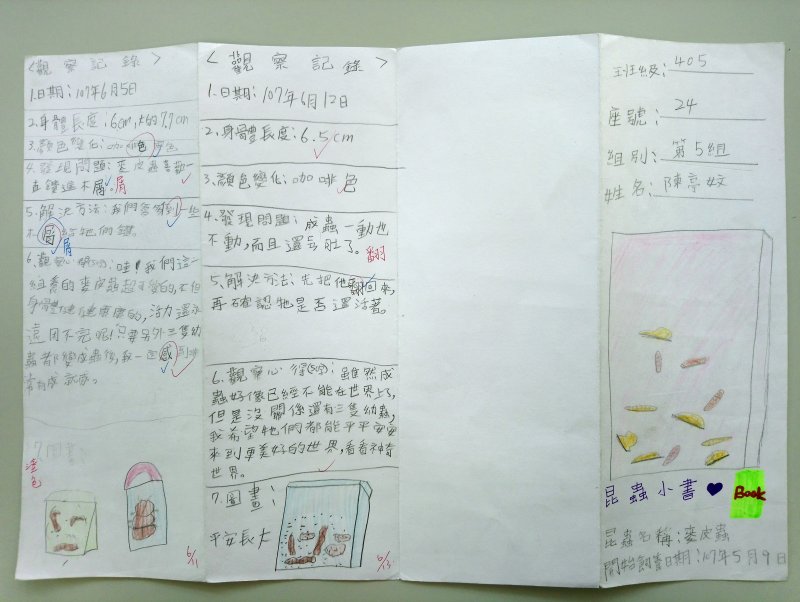 <觀察記錄>
1.日期:107年6月5日
2.身體長度:6cm,大的7.7cm
3.顏色變化:咖啡色
4.發現問題:麥皮蟲喜歡一
直鑽進木屑。屑
5.解決方法:我們會多倒一些
木屑給牠們鑽。
屑
6.觀察心得(50字):哇!我們這一
組養的麥皮蟲超可愛的,不但
身體健健康康的,活力還永
遠用不完呢!只要另外三隻幼
蟲都變成蟲後,我一定感到非
常有成就感。
7.圖畫:
塗色
<觀察記錄>
1.日期:107年6月12日
2.身體長度:6.5cm
3.顏色變化:咖啡色
4.發現問題:成蟲一動也
不動,而且還翻肚了。
翻
5.解決方法:先把他翻回來,
再確認牠是否還活著。
6.觀察心得(50字):雖然成
蟲好像已經不能在世界上了,
但是沒關係還有三隻幼蟲,
我希望牠們都能平平安安
來到更美好的世界,看看神奇
世界。
7.圖畫:
平安長大
班級:405
座號:24
組別:第5組
姓名:陳亭妏
昆蟲小書♥Book
昆蟲名稱:麥皮蟲
開始飼養日期:107年5月9日